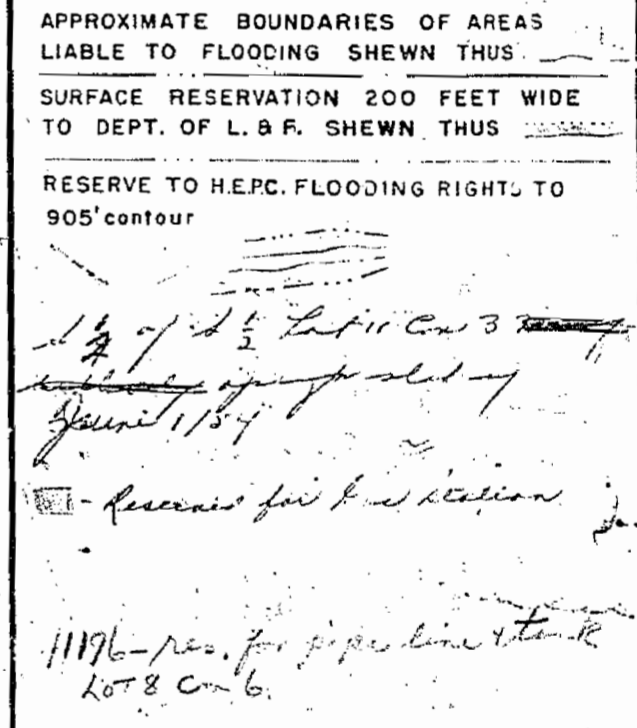 APPROXIMATE BOUNDARIES OF AREAS
LIABLE TO FLOODING SHEWN THUS
SURFACE RESERVATION 200 FEET WIDE
TO DEPT. OF L. & F. SHEWN THUS
RESERVE TO H.E.P.C. FLOODING RIGHTS TO
905' contour
of S 1/2 Lot 11 Con 3
June 1/54
- Reserved for station
11196 - res. for pipe line & tank
LOT 8 Con 6.